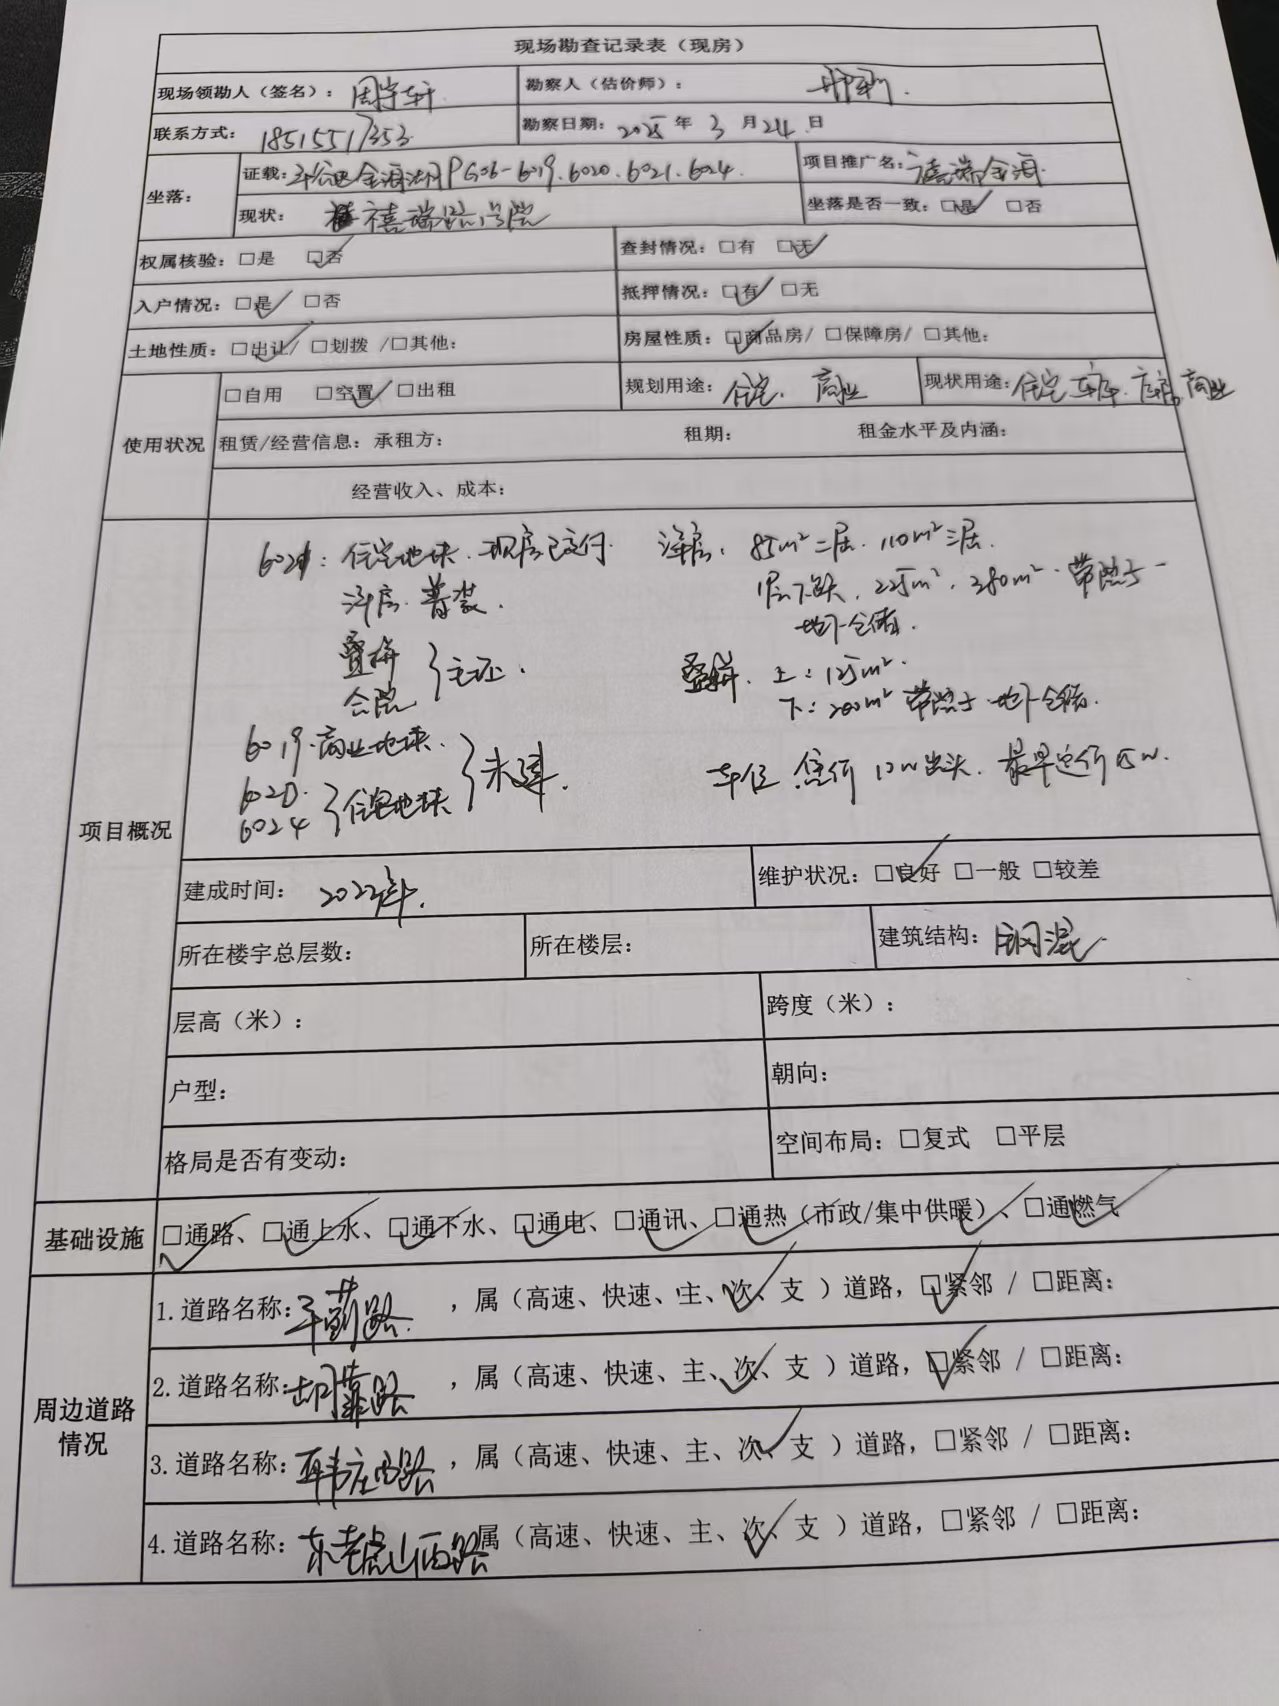 现场勘查记录表（现房）
现场领勘人（签名）：周宇轩 勘察人（估价师）：
联系方式：18515517353 勘察日期：2025年3月24日
坐落：
证载：平谷区金海湖PG06-6019、6020、6021、6024. 项目推广名：禧瑞金海
现状：禧瑞路1号院 坐落是否一致：□是✓ □否
权属核验：□是 □否✓ 查封情况：□有 □无✓
入户情况：□是✓ □否 抵押情况：□有✓ □无
土地性质：□出让✓/ □划拨 /□其他： 房屋性质：□商品房✓/ □保障房/ □其他：
使用状况
□自用 □空置✓ □出租 规划用途：住宅、商业 现状用途：住宅 车库、商业
租赁/经营信息：承租方： 租期： 租金水平及内涵：
经营收入、成本：
项目概况
6021：住宅地块、现房已交付. 洋房：85m²二居、110m²三居.
洋房、普装. 1层下跃、225m²、280m²、带院子
地下仓储.
叠拼 }毛坯. 叠拼、上：125m².
合院 下：200m² 带院子 地下仓储.
6019、商业地块.
6020. }住宅地块 }未建. 车位 售价10w出头、最早定价15w.
6024
建成时间：2023年. 维护状况：□良好✓ □一般 □较差
所在楼宇总层数： 所在楼层： 建筑结构：钢混
层高（米）： 跨度（米）：
户型： 朝向：
格局是否有变动： 空间布局：□复式 □平层
基础设施 □通路✓、□通上水✓、□通下水✓、□通电✓、□通讯✓、□通热✓（市政/集中供暖✓）、□通燃气✓
周边道路情况
1.道路名称：平蓟路，属（高速、快速、主、次✓、支 ）道路，□紧邻✓ / □距离：
2.道路名称：胡靠路，属（高速、快速、主、次✓、支 ）道路，□紧邻✓ / □距离：
3.道路名称：韩庄西路，属（高速、快速、主、次✓、支 ）道路，□紧邻 / □距离：
4.道路名称：东老虎山西路属（高速、快速、主、次✓、支 ）道路，□紧邻 / □距离：